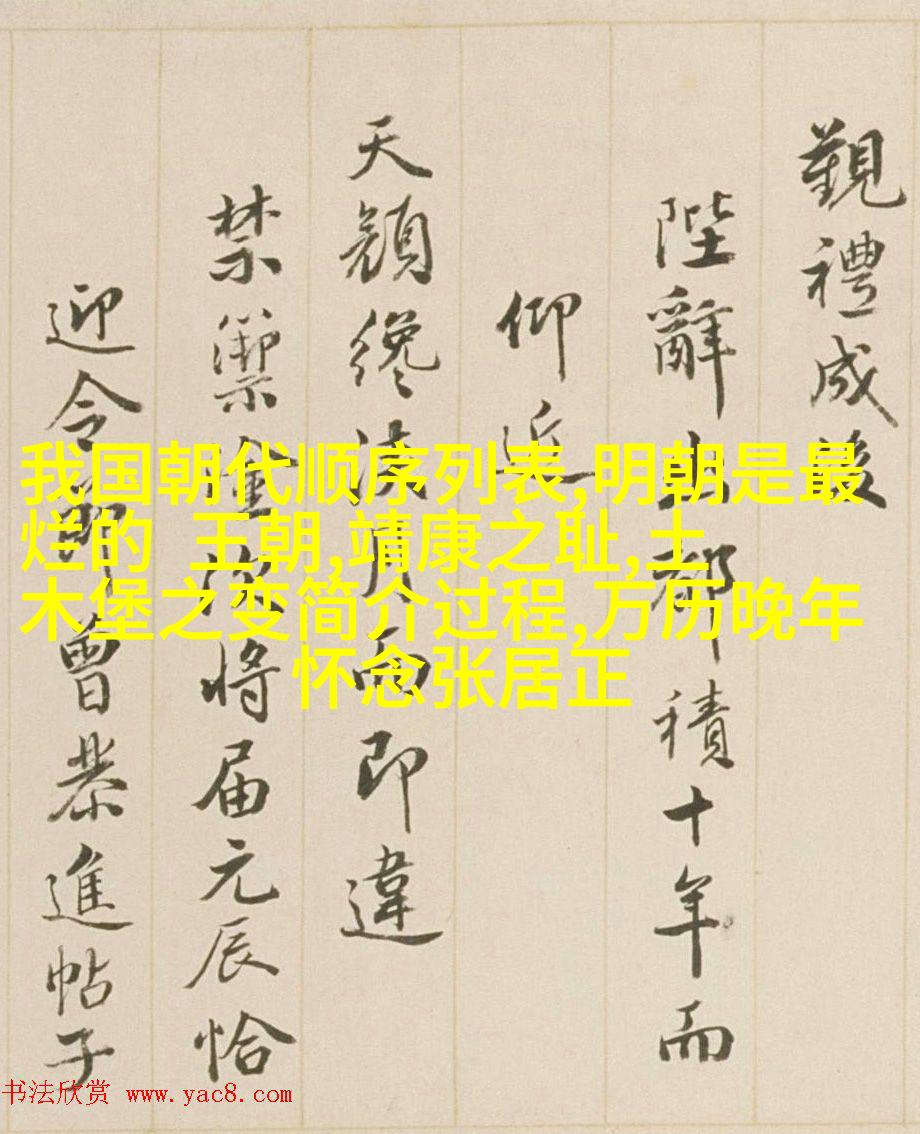 覲禮成後
陛辭出都積十年而
仰近
天顏纔浹月而即違
禁籞將届元辰恰
迎令節曾恭進帖子
我国朝代顺序列表,明朝是最
烂的 王朝,靖康之耻,土
木堡之变简介过程,万历晚年
怀念张居正
书法欣赏 www.yac8.com